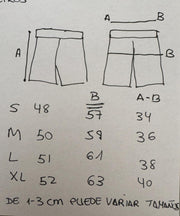 A B
A
B
B A-B
S 48 57 34
M 50 59 36
L 51 61 38
XL 52 63 40
DE 1-3 CM PUEDE VARIAR TAMAÑO